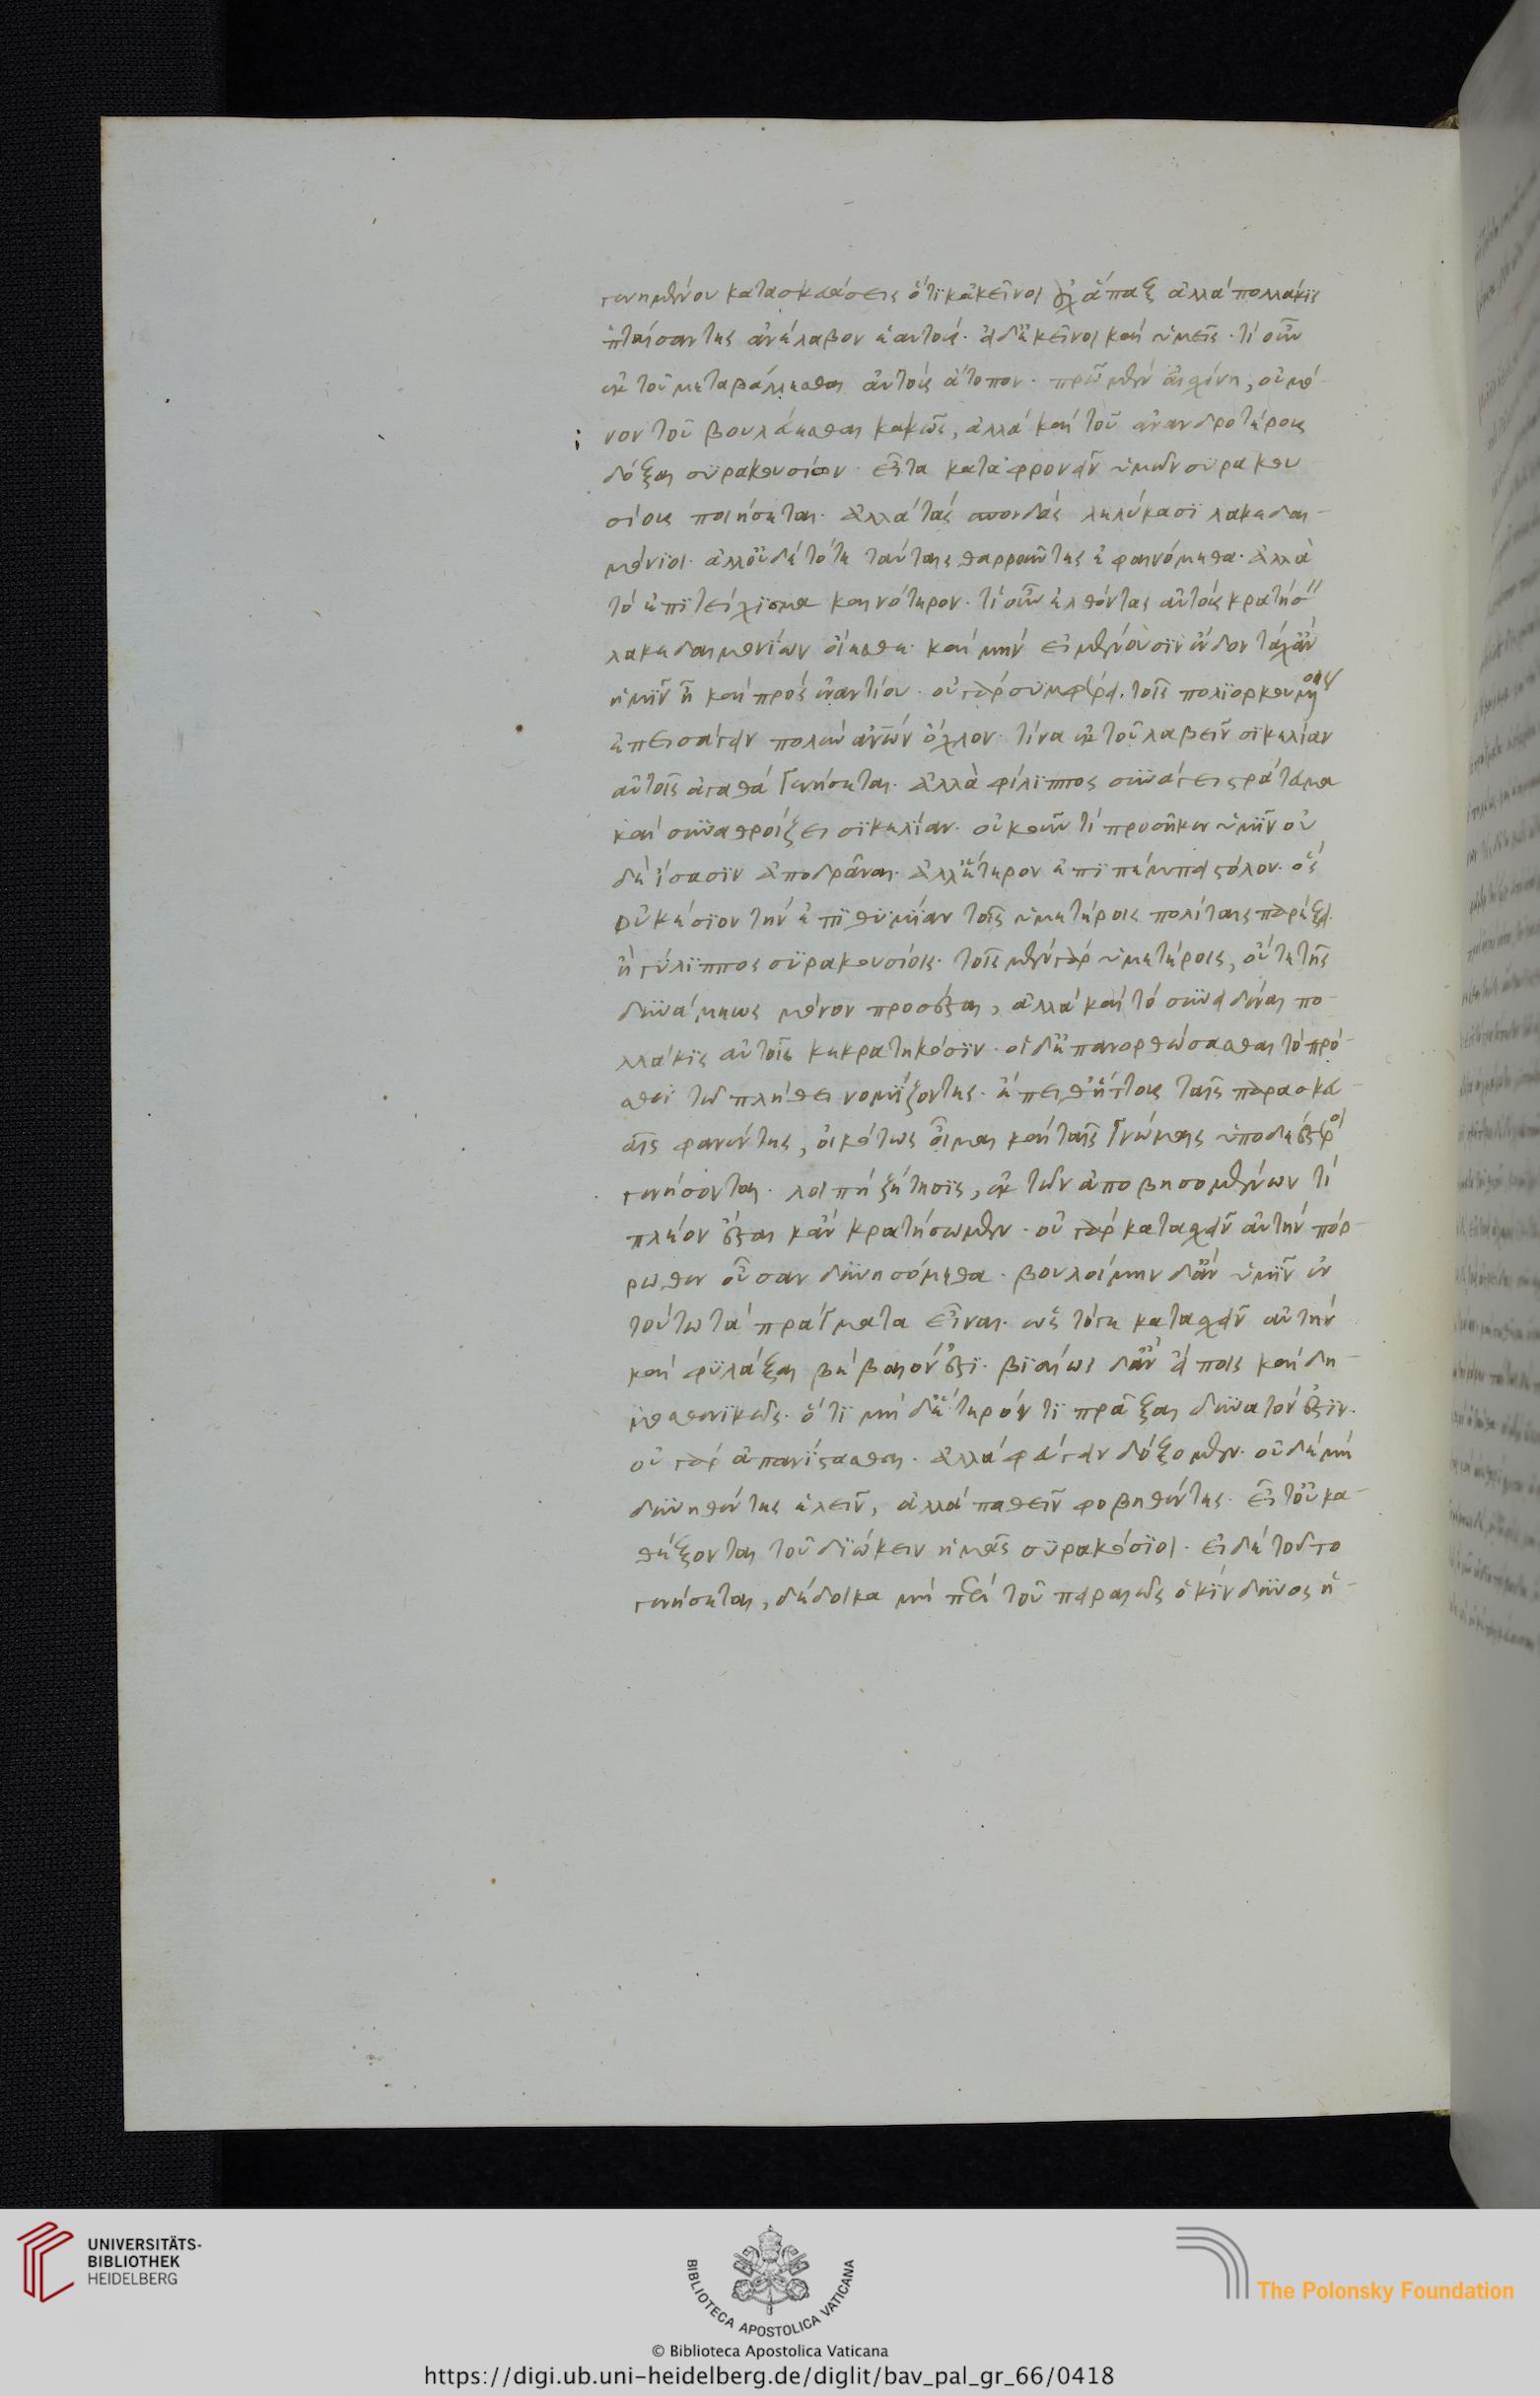 γενημένου κατασκευάσεις ὅτι κἀκεῖνοι οὐχ ἅπαξ ἀλλὰ πολλάκις
πταίσαντες ἀνέλαβον ἑαυτούς. εἰ δ' ἐκεῖνοι καὶ ὑμεῖς. τί οὖν
ἐκ τοῦ μεταβάλλεσθαι αὐτοὺς ἄτοπον. πρῶτον μὲν αἰσχύνη, οὐ μό-
νον τοῦ βουλεύεσθαι κακῶς, ἀλλὰ καὶ τοῦ ἀνανδροτέρους
δόξαι συρακουσίων. εἶτα καταφρονεῖν ὑμῶν συρακου
σίοις ποιήσεται. ἀλλὰ τὰς σπονδὰς λελύκασι λακεδαι-
μόνιοι. ἀλλ' οὐδὲ τότε ταύταις θαρροῦντες ἐφαινόμεθα. ἀλλὰ
τὸ ἐπιτείχισμα καινότερον. τί οὖν ἐλθόντας αὐτοὺς κρατήσειν
λακεδαιμονίων οἴεσθε. καὶ μὴν εἰ μὲν οὖσιν ἔνδον τάχ' ἂν
ἡμῖν ἦ καὶ πρὸς ἐναντίου. οὐ γὰρ συμφέρει τοῖς πολιορκουμένοις
ἐπεισάγειν πολὺν ἀνθρώπων ὄχλον. τίνα ἐκ τοῦ λαβεῖν σικελίαν
αὐτοῖς ἀγαθὰ γενήσεται. ἀλλὰ φίλιππος συνάγει στράτευμα
καὶ συναθροίζει σικελίαν. οὐκοῦν τί προσῆκεν ὑμῖν οὐ
δεΐσασιν ἀποδρᾶναι. ἀλλ' ἕτερον ἐπιπέμπει στόλον. ὃς
οὐκ ἐσιον τὴν ἐπιθυμίαν τοῖς ὑμετέροις πολίταις παρέξει
ἢ γύλιππος συρακουσίοις. τοῖς μὲν γὰρ ὑμετέροις, οὔτε τῆς
δυνάμεως μόνον προσέσται, ἀλλὰ καὶ τὸ συνειδέναι πο-
λλάκις αὐτοῖς κεκρατηκόσιν. οἱ δ' ἐπανορθώσασθαι τὸ πρό-
σθεν τῷ πλήθει νομίζοντες. ἔπειθ' ἥττους ταῖς παρασκευ-
αῖς φανέντες, εἰκότως οἶμαι καὶ ταῖς γνώμαις ὑποδεέστεροι
γενήσονται. λοιπὴ ζήτησις, ἐκ τῶν ἀποβησομένων τί
πλέον ἔσται κἂν κρατήσωμεν. οὐ γὰρ κατασχεῖν αὐτὴν πόρ-
ρωθεν οὖσαν δυνησόμεθα. βουλοίμην δ' ἂν ὑμῖν ἐν
τούτω τὰ πράγματα εἶναι. ὡς τόγε κατασχεῖν αὐτὴν
καὶ φυλάξαι βέβαιόν ἐστι. βιαίως δ' ἂν εἴποις καὶ δη-
μοσθενικῶς. ὅτι μηδ' ἕτερόν τι πρᾶξαι δυνατόν ἐστιν.
οὐ γὰρ ἀπανίστασθαι. ἀλλὰ φεύγειν δόξομεν. οὐδὲ μὴ
δυνηθέντες ἑλεῖν, ἀλλὰ παθεῖν φοβηθέντες. εἶτ' οὐ κα-
θέξονται τοῦ διώκειν ἡμᾶς συρακόσιοι. εἰ δὲ τοῦτο
γενήσεται, δέδοικα μὴ περὶ τοῦ πειραιῶς ὁ κίνδυνος ἡ-
UNIVERSITÄTS-
BIBLIOTHEK
HEIDELBERG
BIBLIOTECA APOSTOLICA VATICANA
© Biblioteca Apostolica Vaticana
The Polonsky Foundation
https://digi.ub.uni-heidelberg.de/diglit/bav_pal_gr_66/0418